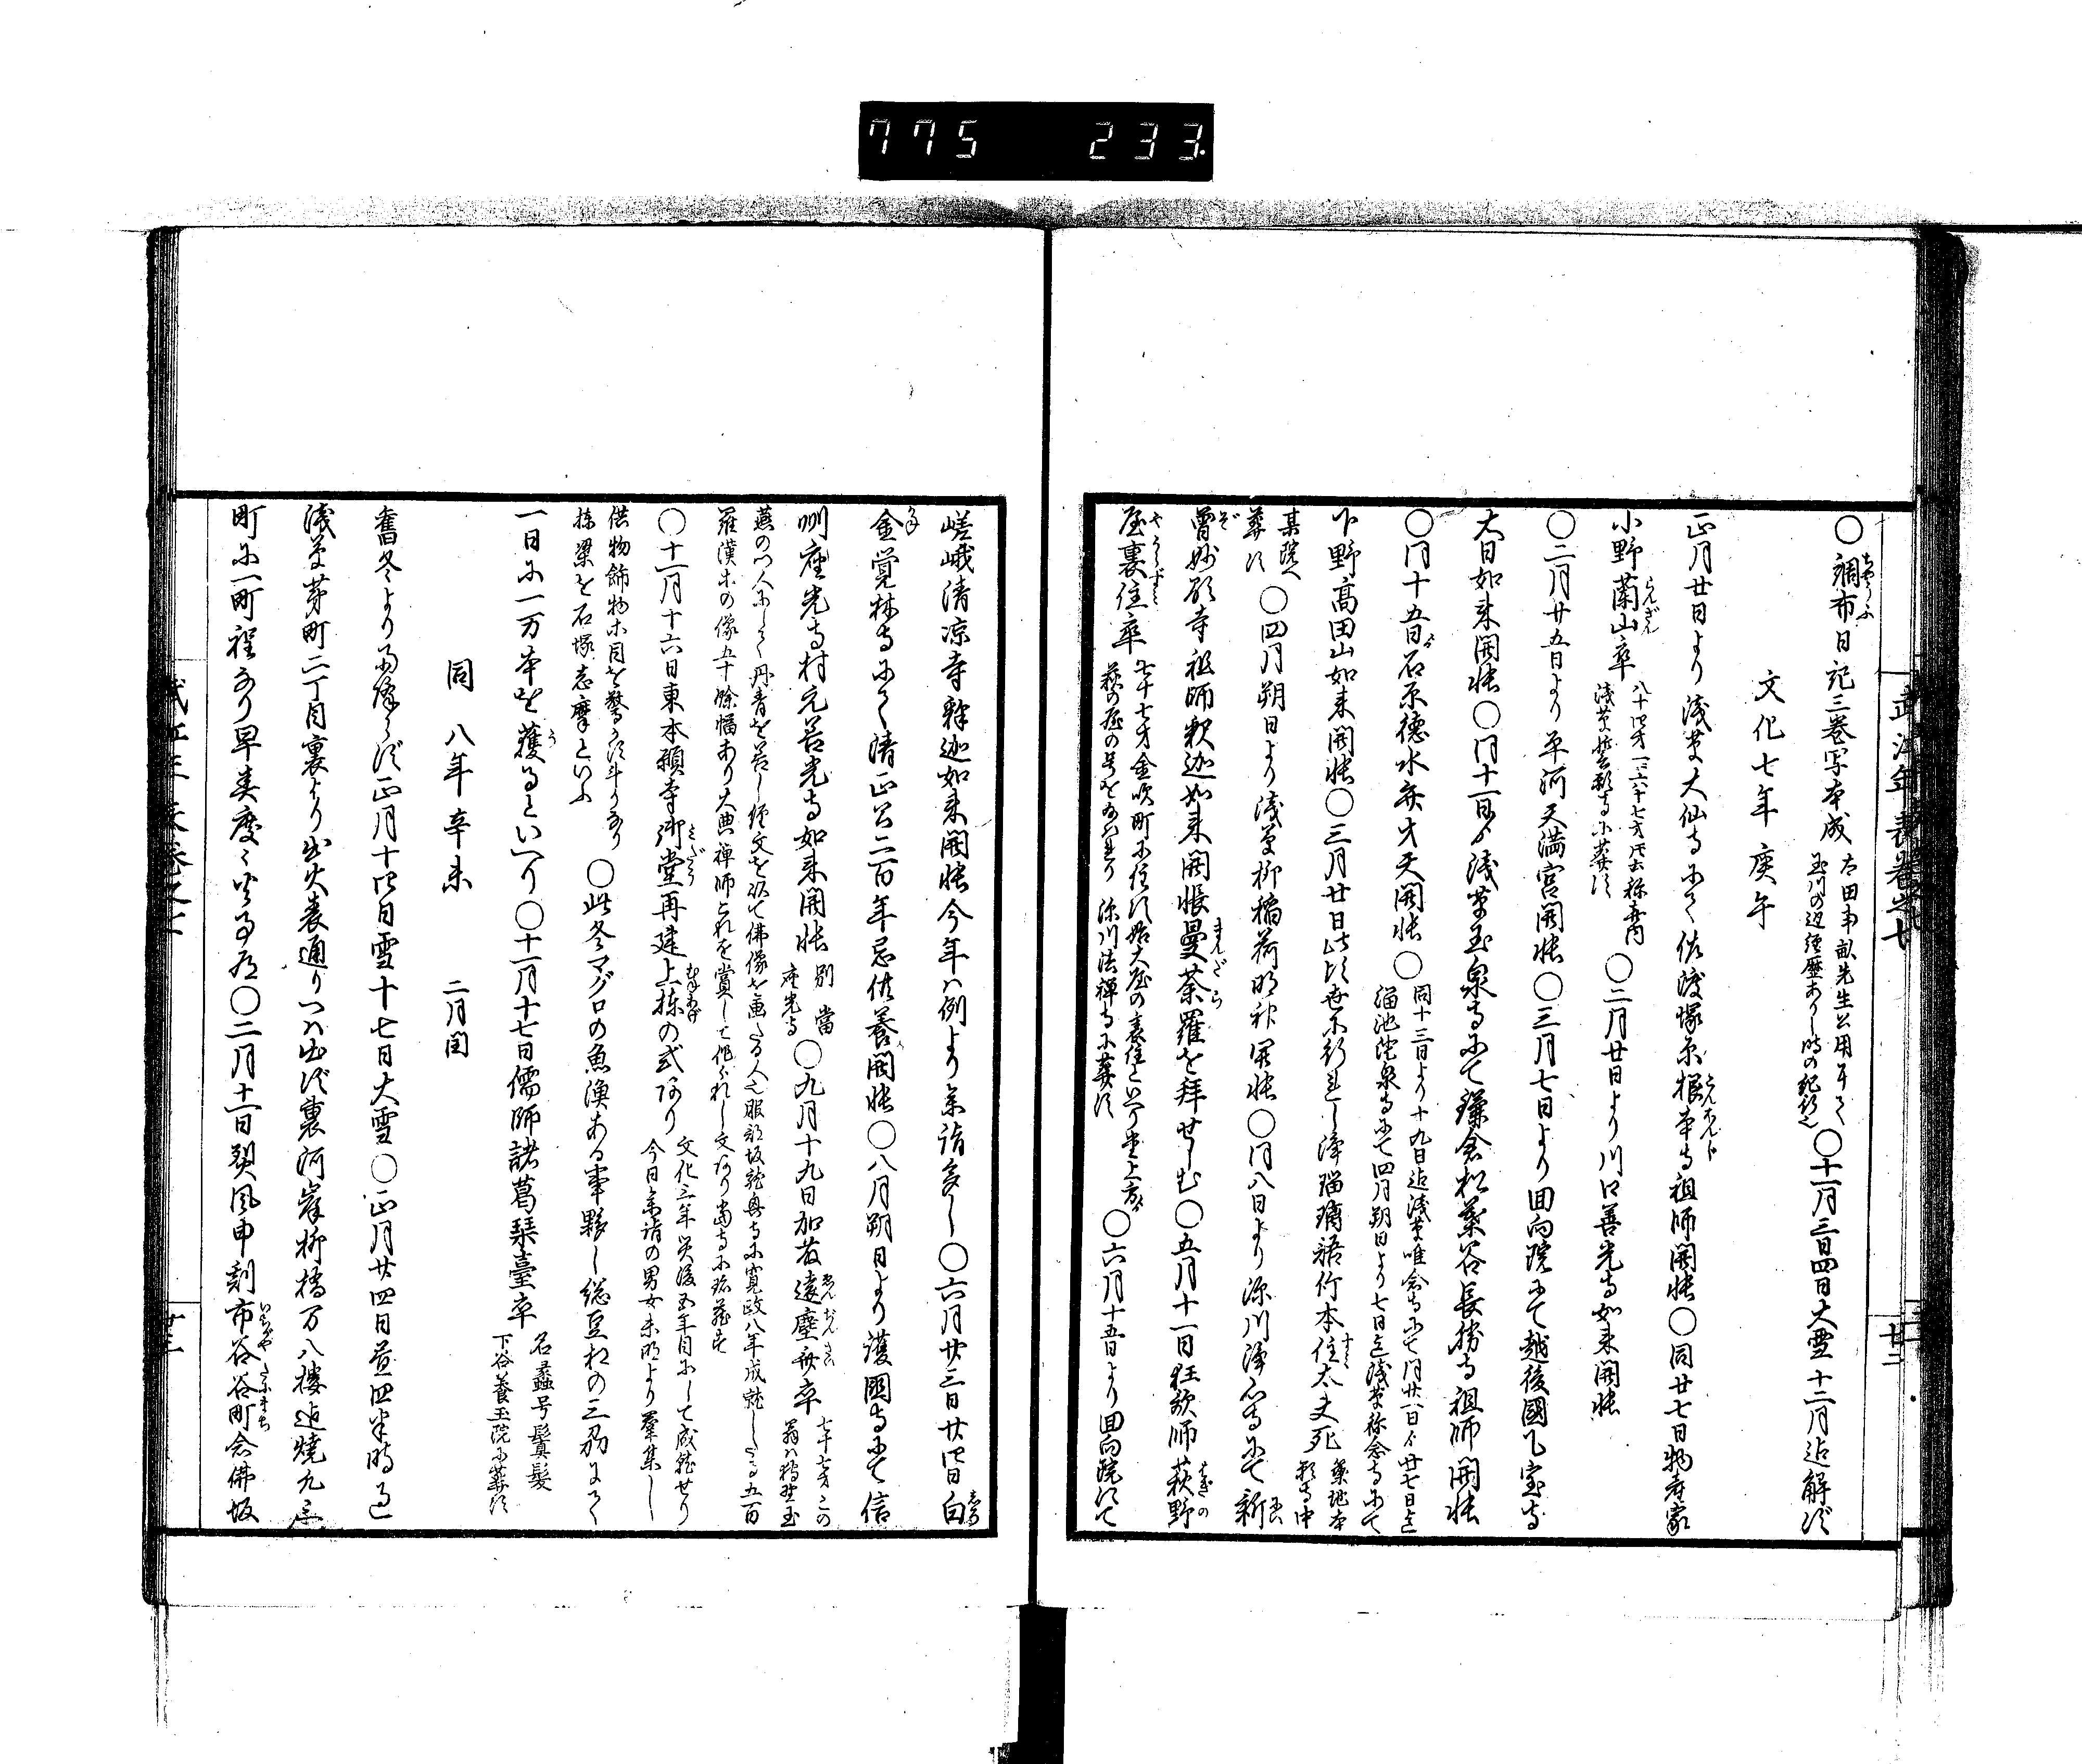 775 233.
武江年表巻之七
廿二
○調布日記三巻写本成 太田南畝先生公用ニよりて
玉川の辺経歴ありし時の紀行也 ○十一月三日四日大雪十二月迄解ず
文化七年庚午
正月廿日より浅草大仙寺にて佐渡塚原根本寺祖師開帳○同廿七日物産家
小野蘭山卒 八十四才
浅草誓願寺に葬す ○二月廿日より川口善光寺如来開帳
○二月廿五日より平河天満宮開帳○三月七日より回向院にて越後國乙宝寺
大日如来開帳○同十一日より浅草玉泉寺にて鎌倉松葉谷長勝寺祖師開帳
○同十五日石原徳水弁才天開帳○同十三日より十九日迄浅草唯念寺にて同廿一日より廿七日迄
溜池澄泉寺にて四月朔日より七日迄浅草称念寺にて
下野高田山如来開帳○三月廿日此頃世に行れし浄瑠璃語竹本住太夫死 築地本
願寺中
某院へ
葬す ○四月朔日より浅草柳稲荷明神開帳○同八日より深川浄心寺にて新
曽妙顕寺祖師釈迦如来開帳曼荼羅を拝せしむ○五月十一日狂歌師萩野
屋裏住卒 七十七才金吹町に住す始大屋の裏住といひ
萩の屋の号を 深川法禅寺に葬す ○六月十五日より回向院にて
嵯峨清凉寺釈迦如来開帳今年は例より参詣多し○六月廿三日廿四日白
金覚林寺にて清正公二百年忌供養開帳○八月朔日より護國寺にて信
州座光寺村元善光寺如来開帳 別當
座光寺 ○九月十九日加藤遠塵斎卒 七十七才この
翁は狩野玉
燕の門人にして丹青を善し経文を以て佛像を画たる人也服部坂龍興寺に寛政八年成就したる五百
羅漢等の像五十餘幅あり大典禅師これを賞して作られし文あり当寺に珎蔵す
○十一月十六日東本願寺御堂再建上棟の式あり 文化三年災後五年目にして成就せり
今日参詣の男女未明より群集し
供物餝物等目を驚かす斗りなり
棟梁を石塚志摩といふ ○此冬マグロの魚漁ある事夥し総豆相の三州にて
一日に一万本を獲るといへり○十一月十七日儒師諸葛琴臺卒 名蠡号鬒髪
下谷養玉院に葬す
同八年辛未 二月閏
舊冬より雨降らず正月十四日雪十七日大雪○正月廿四日昼四半時過
浅草茅町二丁目裏より出火表通りへは出ず裏河岸柳橋万八楼迄焼亡三
町に一町程なり早春度々火事あり○二月十一日烈風申刻市谷谷町念佛坂
武江年表巻之七
廿三